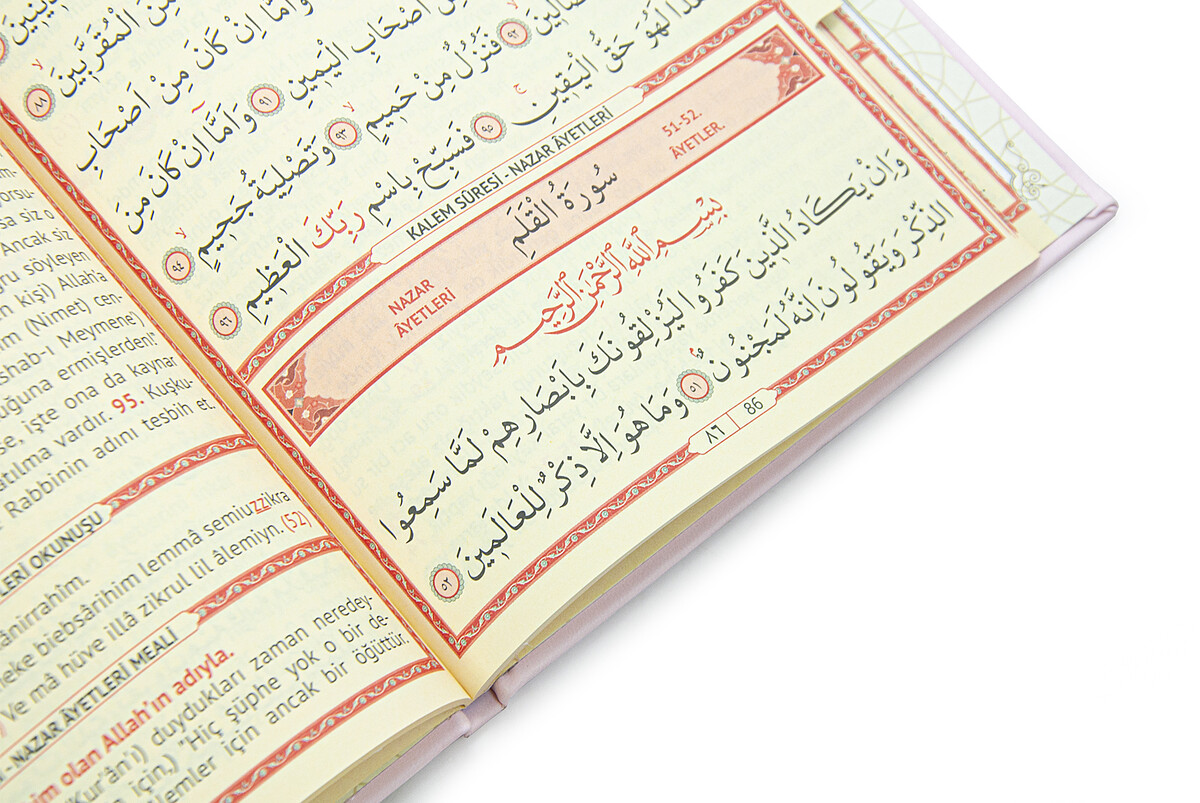 وَاَمَّا اِنْ كَانَ مِنَ الْمُقَرَّبِينَ ٨٨
اَصْحَابِ الْيَمِينِ ٩١ وَاَمَّا اِنْ كَانَ مِنْ اَصْحَابِ
فَنُزُلٌ مِنْ حَمِيمٍ ٩٣ وَتَصْلِيَةُ جَحِيمٍ ٩٤
لَهُوَ حَقُّ الْيَقِينِ ٩٥ فَسَبِّحْ بِاسْمِ رَبِّكَ الْعَظِيمِ ٩٦
KALEM SÛRESİ - NAZAR ÂYETLERİ
NAZAR
ÂYETLERİ
سُورَةُ الْقَلَمِ
51-52.
ÂYETLER.
بِسْمِ اللّٰهِ الرَّحْمٰنِ الرَّحِيمِ
وَاِنْ يَكَادُ الَّذِينَ كَفَرُوا لَيُزْلِقُونَكَ بِاَبْصَارِهِمْ لَمَّا سَمِعُوا
الذِّكْرَ وَيَقُولُونَ اِنَّهُ لَمَجْنُونٌ ٥١ وَمَا هُوَ اِلَّا ذِكْرٌ لِلْعَالَمِينَ ٥٢
٨٦ 86
sa siz o
Ancak siz
söyleyen
kişi) Allah'a
(Nimet) cen-
Meymene)
ğuna ermişlerden!
se, işte ona da kaynar
atılma vardır. 95. Kuşku-
Rabbinin adını tesbih et.
LERİ OKUNUŞU
ânirrahîm.
neke biebsârihim lemmâ semiuzzikra
Ve mâ hüve illâ zikrul lil âlemiyn. (52)
- NAZAR ÂYETLERİ MEALİ
olan Allah'ın adıyla.
(Kur'ân'ı) duydukları zaman neredey-
için,) "Hiç şüphe yok o bir de-
âlemler için ancak bir öğüttür.